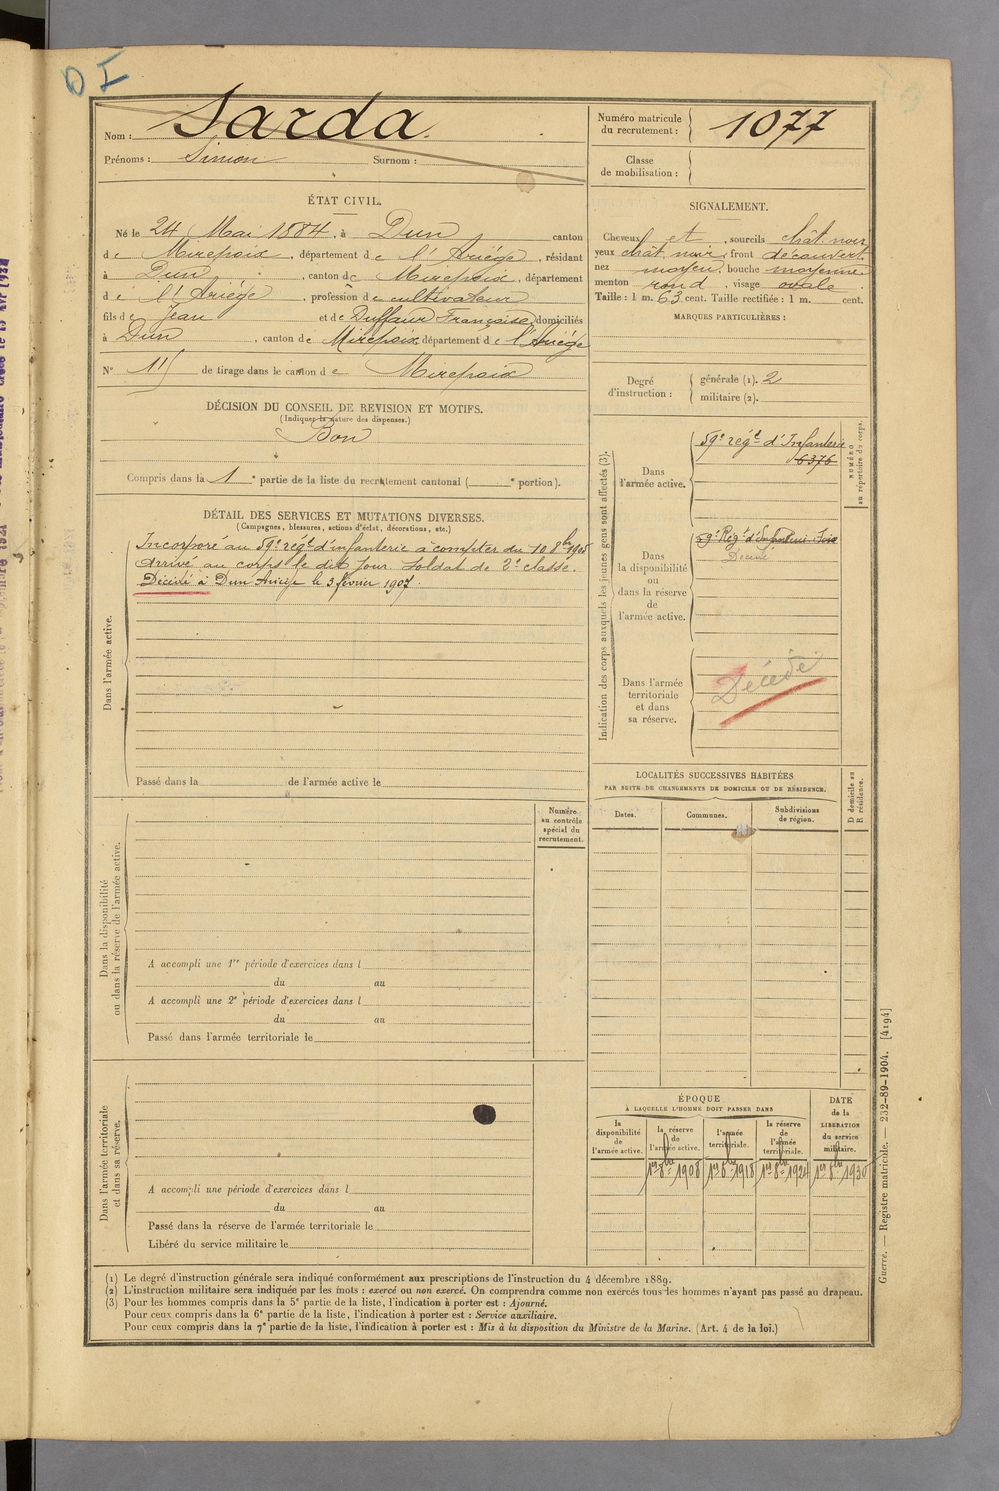 Nom : Sarda.
Prénoms : Simon Surnom :
Numéro matricule du recrutement : 1077
Classe de mobilisation :
ÉTAT CIVIL.
Né le 24 Mai 1884, à Dun canton
de Mirepoix, département de l'Ariège, résidant
à Dun, canton de Mirepoix, département
de l'Ariège, profession de cultivateur
fils de Jean et de Duffaur Françoise, domiciliés
à Dun, canton de Mirepoix, département de l'Ariège
N° 115 de tirage dans le canton de Mirepoix
SIGNALEMENT.
Cheveux et, sourcils chât. noir,
yeux chât. noir, front découvert,
nez moyen, bouche moyenne
menton rond, visage ovale
Taille : 1 m. 63 cent. Taille rectifiée : 1 m. cent.
MARQUES PARTICULIÈRES :
Degré d'instruction :
générale (1). 2
militaire (2).
DÉCISION DU CONSEIL DE REVISION ET MOTIFS.
(Indiquer la nature des dispenses.)
Bon
Compris dans la 1e partie de la liste du recrutement cantonal ( e portion).
DÉTAIL DES SERVICES ET MUTATIONS DIVERSES.
(Campagnes, blessures, actions d'éclat, décorations, etc.)
Dans l'armée active.
Incorporé au 59e régt d'infanterie à compter du 10 8bre 1905
Arrivé au corps le dit jour. Soldat de 2e classe.
Décédé à Dun Ariège le 3 février 1907.
Passé dans la de l'armée active le
Indication des corps auxquels les jeunes gens sont affectés (3).
NUMÉRO
au répertoire du corps.
Dans l'armée active.
59e régt d'Infanterie
6376
Dans la disponibilité ou dans la réserve de l'armée active.
59e Régt d'Infanterie Foix
Décédé
Dans l'armée territoriale et dans sa réserve.
Décédé
LOCALITÉS SUCCESSIVES HABITÉES
PAR SUITE DE CHANGEMENTS DE DOMICILE OU DE RÉSIDENCE.
Dates. Communes. Subdivisions de région.
D domicile ou R résidence.
Dans la disponibilité ou dans la réserve de l'armée active.
Numéro au contrôle spécial du recrutement.
A accompli une 1re période d'exercices dans l
du au
A accompli une 2e période d'exercices dans l
du au
Passé dans l'armée territoriale le
Dans l'armée territoriale et dans sa réserve.
A accompli une période d'exercices dans l
du au
Passé dans la réserve de l'armée territoriale le
Libéré du service militaire le
ÉPOQUE
À LAQUELLE L'HOMME DOIT PASSER DANS
la disponibilité de l'armée active.
la réserve de l'armée active.
l'armée territoriale.
la réserve de l'armée territoriale.
DATE de la LIBERATION du service militaire.
1er 8bre 1908 1er 8bre 1918 1er 8bre 1924 1er 8bre 1930
Guerre. — Registre matricule. — 232-89-1904. [4194]
(1) Le degré d'instruction générale sera indiqué conformément aux prescriptions de l'instruction du 4 décembre 1889.
(2) L'instruction militaire sera indiquée par les mots : exercé ou non exercé. On comprendra comme non exercés tous les hommes n'ayant pas passé au drapeau.
(3) Pour les hommes compris dans la 5e partie de la liste, l'indication à porter est : Ajourné.
Pour ceux compris dans la 6e partie de la liste, l'indication à porter est : Service auxiliaire.
Pour ceux compris dans la 7e partie de la liste, l'indication à porter est : Mis à la disposition du Ministre de la Marine. (Art. 4 de la loi.)